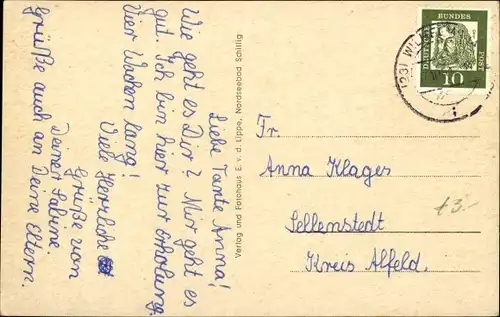 Liebe Tante Anna!
Wie geht es Dir? Mir geht es
gut. Ich bin hier zur Erholung.
Vier Wochen lang!
Viele Herzliche
Grüße von
Deiner Sabine.
Grüße auch an Deine Eltern.
Verlag und Fotohaus E. v. d. Lippe, Nordseebad Schillig
DEUTSCHE
BUNDES
POST
10
(23)
Fr.
Anna Klages
Sellenstedt
Kreis Alfeld.